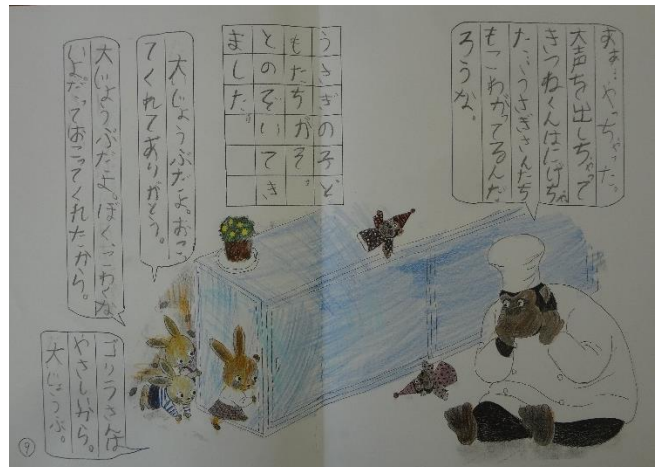 ああ…やっちゃった。
大声を出しちゃって
きつねくんはにげちゃっ
た…うさぎさんたち
もこわがってるんだ
ろうな。
うさぎの子ど
もたちがそっ
とのぞいてき
ました。
大じょうぶだよ。おこっ
てくれてありがとう。
大じょうぶだよ。ぼく、こわくな
いよだっておこってくれたから。
ゴリラさんは
やさしいから。
大じょうぶ。
9